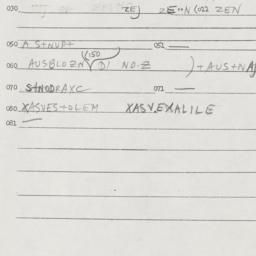 030 ZEJ ZE**N (022 ZEN
050 A STNUP+ 051
(150
060 AUSBLOZN DI NO.Z )+AUS+NA
070 STNODRAXC 071
080 XASVES+OLEM XASVEXALILE
081